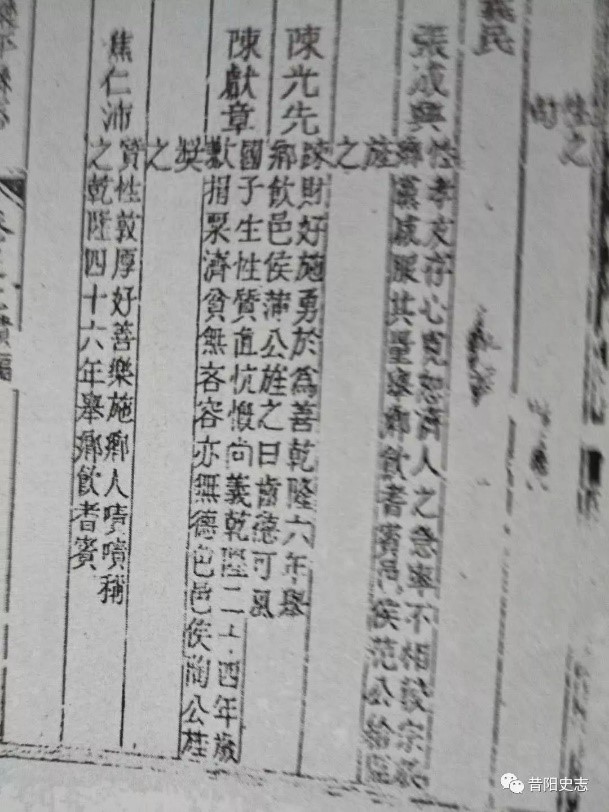 性之
義民
張成興
性孝友存心寬恕濟人之急率不相較宗族
鄉黨咸服其量舉鄉飲耆賓邑侯范公給匾
旌之
陳光先
疎財好施勇於為善乾隆六年舉
鄉飲邑侯蒲公旌之曰齒德可風
陳獻章
國子生性質直忼慨尚義乾隆二十四年歲
歉捐粟濟貧無吝容亦無德色邑侯陶公旌
獎之
焦仁沛
質性敦厚好善樂施鄉人嘖嘖稱
之乾隆四十六年舉鄉飲耆賓
昔阳史志